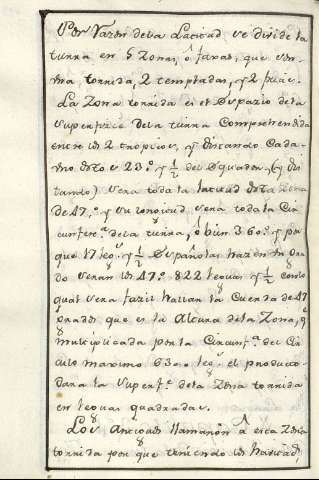 Por razon de la Latitud se divide la
tierra en 5 Zonas, ó faxas, que son
una torrida, 2 templadas, y 2 frias.
La Zona torrida es el Espazio de la
superficie de la tierra Comprehendida
entre los 2 tropicos, y distando Cada
uno 23.° y 1/2 del Equador, (q dis
tando) sera toda la latitud desta Zona
de 47.° y su longitud sera toda la Cir
cunfer.a de la tierra, ó bien 360.° y
que 17 leg.s y 1/2 Españolas hazen un Gra
do seran los 47.° 822 leguas y 1/2 con lo
qual sera fazil hallar la Cuenta de 47
grados que es la Altura de la Zona, q
multiplicada por la Circunf.a del Cir
culo maximo 6300 leg.s el producto
dara la superf.e de la Zona torrida
en leguas quadradas.
Los Antiguos llamaron A esta Zona
torrida por que teniendo